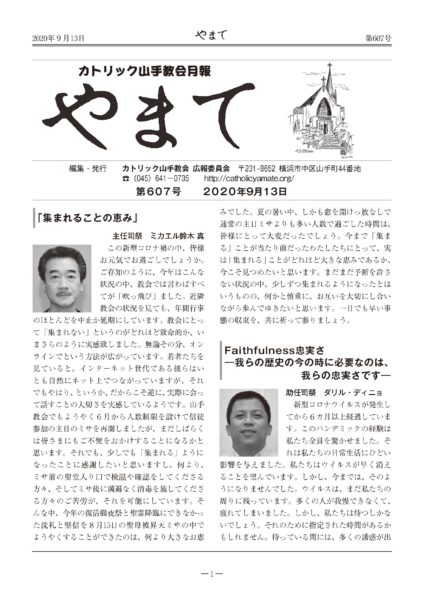 2020年９月13日
やまて
第607号
カトリック山手教会月報
やまて
編集・発行 カトリック山手教会 広報委員会 〒231-8652 横浜市中区山手町44番地
☎ (045) 641－0735 http://catholicyamate.org/
第６０７号 ２０２０年９月１３日
「集まれることの恵み」
主任司祭 ミカエル鈴木 真
この新型コロナ禍の中、皆様
お元気でお過ごしでしょうか。
ご存知のように、今年はこんな
状況の中、教会では言わばすべ
てが「吹っ飛び」ました。近隣
教会の状況を見ても、年間行事
のほとんどを中止か延期にしています。教会にとっ
て「集まれない」というのがどれほど致命的か、い
まさらのように実感致しました。無論その分、オン
ラインでという方法が広がっています。若者たちを
見ていると、インターネット世代である彼らはい
とも自然にネット上でつながっていますが、それ
でもやはり、というか、だからこそ逆に、実際に会っ
て話すことの大切さを実感しているようです。山手
教会でもようやく６月から人数制限を設けて信徒
参加の主日のミサを再開しましたが、まだしばらく
は皆さまにもご不便をおかけすることになるかと
思います。それでも、少しでも「集まれる」ように
なったことに感謝したいと思いますし、何より、
ミサ前の聖堂入り口で検温や確認をしてくださる
方々、そしてミサ後に綺麗なく消毒を施してくださ
る方々のご苦労が、それを可能にしています。そ
んな中、今年の復活徹夜祭と聖霊降臨にできなかっ
た洗礼と堅信を８月15日の聖母被昇天ミサの中で
ようやくすることができたのは、何より大きなお恵
みでした。夏の暑い中、しかも窓を開けっ放なしで
通常の主日ミサよりも多い人数で過ごした時間は、
皆様にとって大変だったでしょう。今まで「集ま
る」ことが当たり前だったわたしたちにとって、実
は「集まれる」ことがどれほど大きな恵みであるか、
今こそ見つめたいと思います。まだまだ予断を許さ
ない状況の中、少しずつ集まれるようになったとは
いうものの、何かと慎重に、お互いを大切にし合い
ながら歩んでゆきたいと思います。一日でも早い事
態の収束を、共に祈って参りましょう。
Faithfulness忠実さ
―我らの歴史の今の時に必要なのは、
我らの忠実さです―
助任司祭 ダリル・ディニョ
新型コロナウイルスが発生し
てから６カ月以上経過していま
す。このパンデミックの経験は
私たち全員を驚かせました。そ
れは私たちの日常生活にひどい
影響を与えました。私たちはウイルスが早く消え
ることを望んでいます。しかし、今までは、そのよ
うになりませんでした。ウイルスは、まだ私たちの
周りに残っています。多くの人が我慢できなくて、
疲れてしまいました。しかし、私たちは待つしかな
いでしょう。それのために指定された時間があるか
もしれません。待っている間には、多くの誘惑が出
―１―